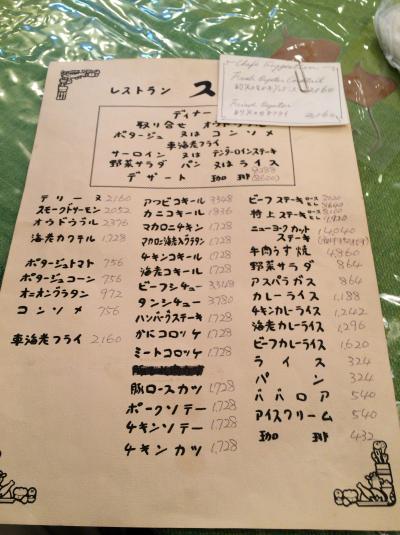 レストラン ス
Chef's Suggestion
Fresh Oyster Cocktail
2160
Fried Oyster
2160
ディナー
取り合せ オウドウ
ポタージュ 又は コンソメ
車海老フライ
サーロイン 又は テンダーロインステーキ
野菜サラダ パン 又は ライス
デザート 珈琲
テリーヌ 2160
スモークドサーモン 2052
オウドウヴル 2376
海老カクテル 1,728
ポタージュトマト 756
ポタージュコーン 756
オニオングラタン 972
コンソメ 756
車海老フライ 2160
アワビコキール 3348
カニコキール 1836
マカロニチキン 1,728
マカロニ海老グラタン 1,728
チキンコキール 1,728
海老コキール 1,728
ビーフシチュー 3348
タンシチュー 3780
ハンバークステーキ 1,728
かにコロッケ 1,728
ミートコロッケ 1,728
豚ロースカツ 1,728
ポークソテー 1,728
チキンソテー 1,728
チキンカツ 1,728
ビーフステーキ
特上ステーキ
ニューヨークカット 14,040
ステーキ
牛肉うす焼 4860
野菜サラダ 864
アスパラガス 864
カレーライス 1,188
チキンカレーライス 1,242
海老カレーライス 1,296
ビーフカレーライス 1,620
ライス 324
パン 324
ババロア 540
アイスクリーム 540
珈琲 432